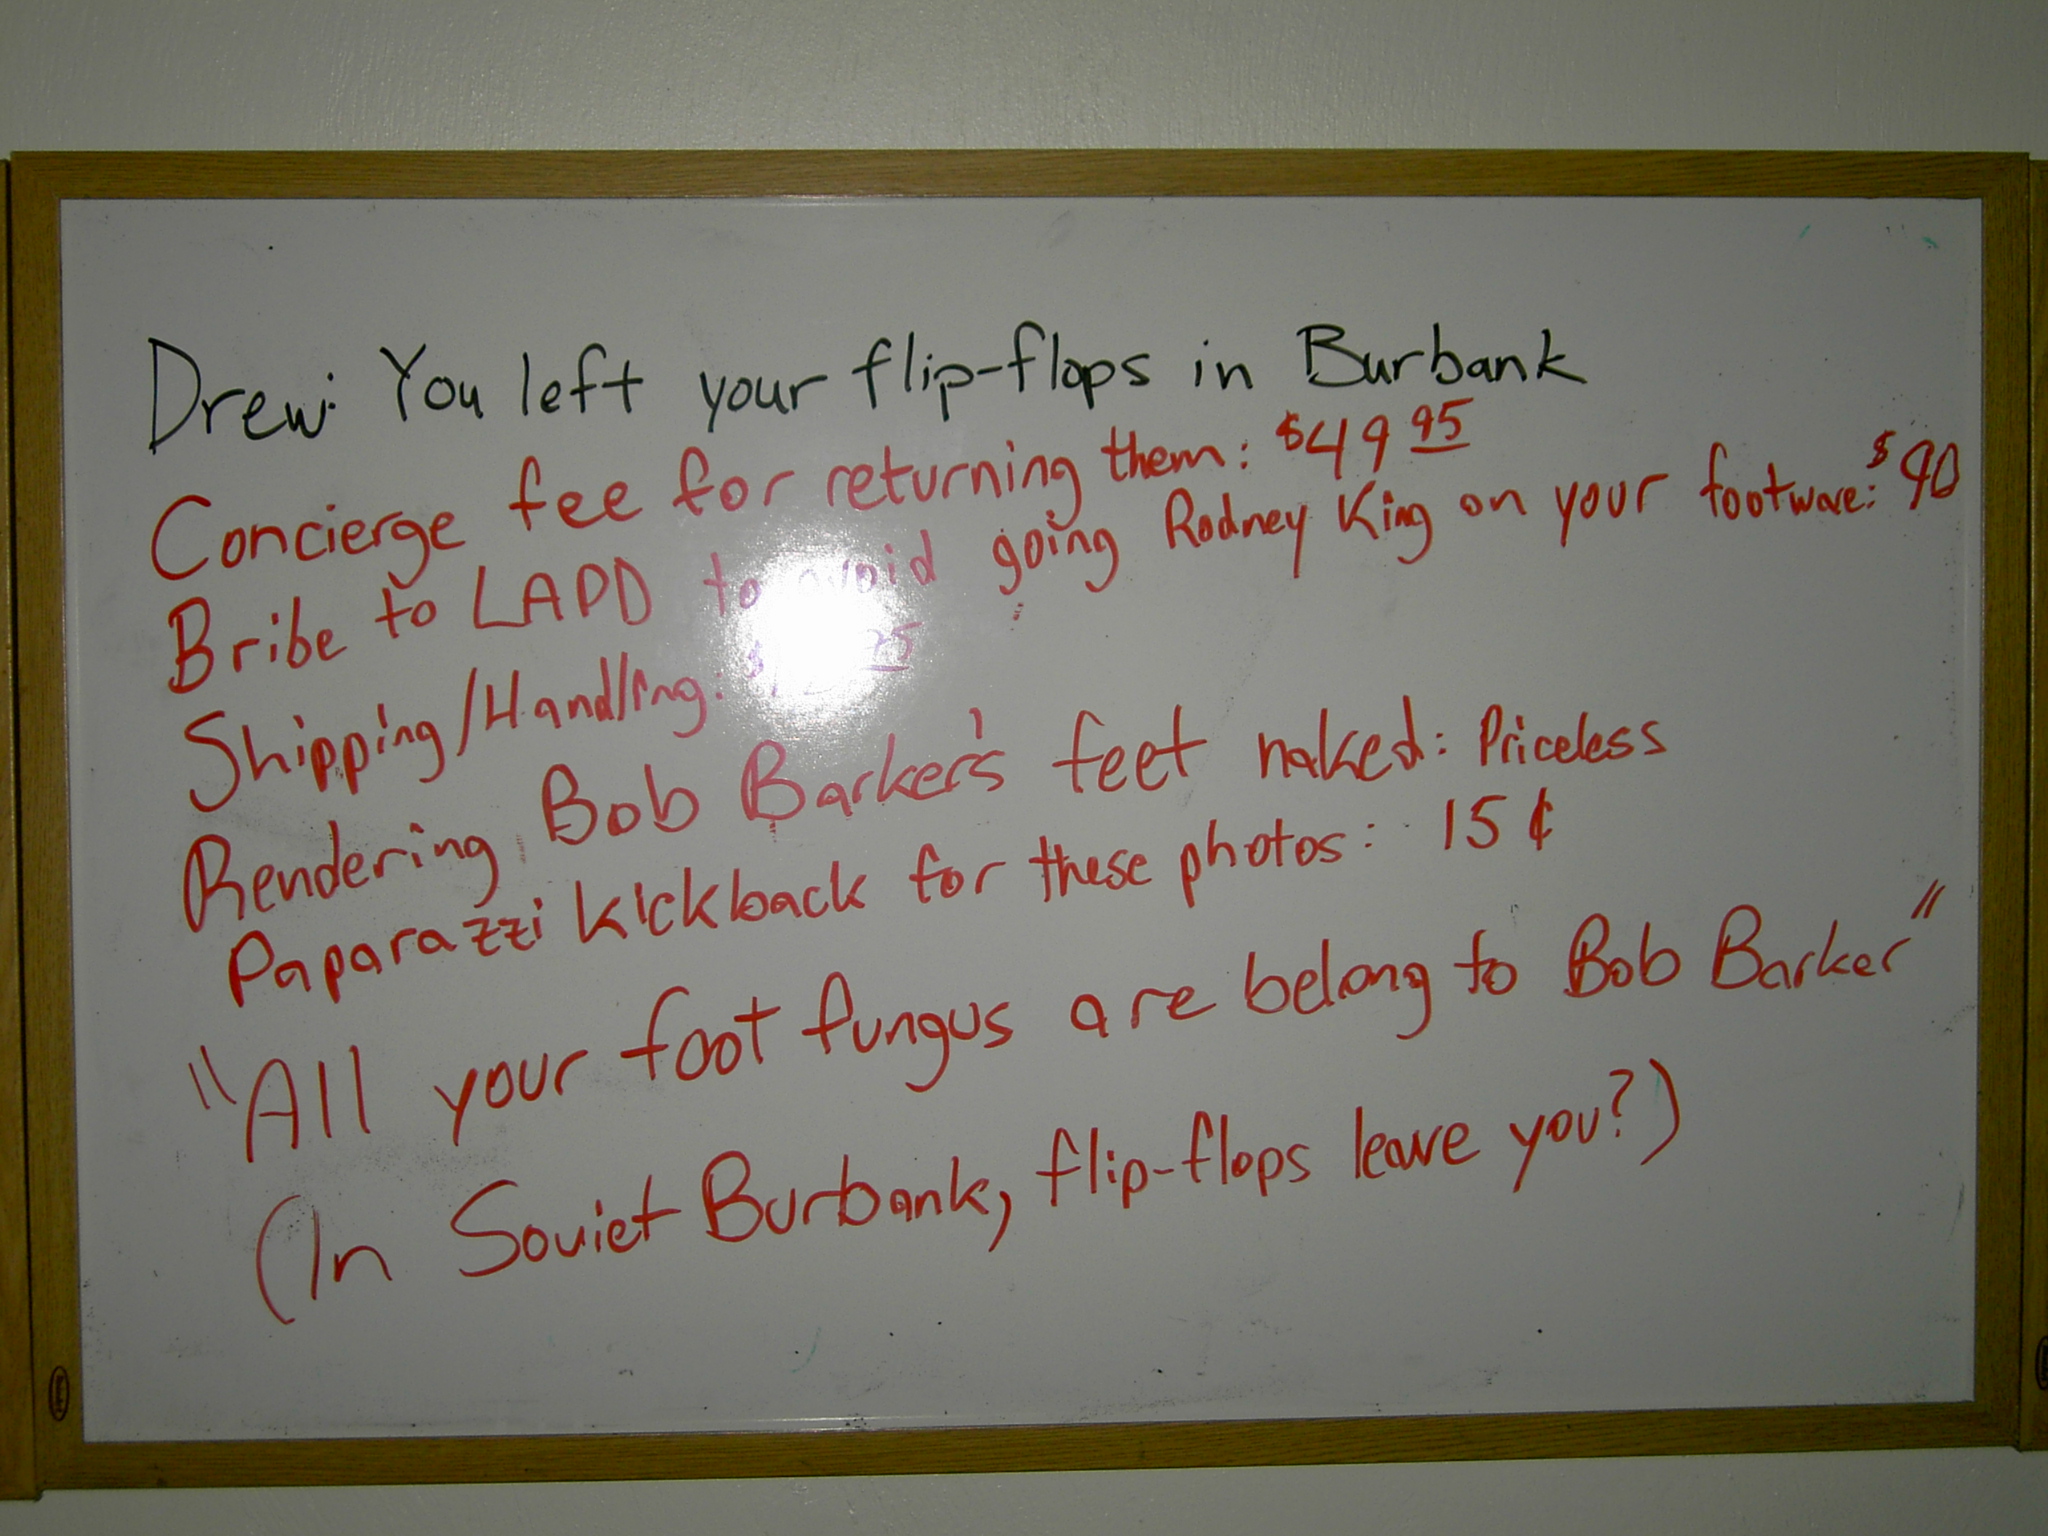 Drew: You left your flip-flops in Burbank
Concierge fee for returning them: $49 95
Bribe to LAPD to avoid going Rodney King on your footware: $90
Shipping/Handling: $ 75
Rendering Bob Barker's feet naked: Priceless
Paparazzi kickback for these photos: 15¢
"All your foot fungus are belong to Bob Barker"
(In Soviet Burbank, flip-flops leave you?)